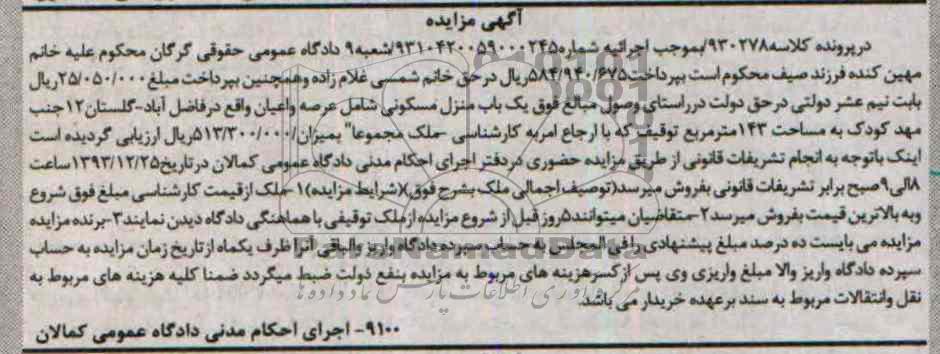 آگهی مزایده
درپرونده کلاسه۹۳۰۲۷۸/بموجب اجرائیه شماره۹۳۱۰۴۲۰۰۵۹۰۰۰۲۴۵/شعبه۹ دادگاه عمومی حقوقی گرگان محکوم علیه خانم
مهین کنده فرزند صیف محکوم است بپرداخت۵۸۴/۹۴۰/۶۷۵ریال درحق خانم شمسی غلام زاده وهمچنین بپرداخت مبلغ۲۵/۰۵۰/۰۰۰ریال
بابت نیم عشر دولتی درحق دولت درراستای وصول مبالغ فوق یک باب منزل مسکونی شامل عرصه واعیان واقع درفاضل آباد-گلستان۱۲جنب
مهد کودک به مساحت ۱۴۳مترمربع توقیف که با ارجاع امربه کارشناسی -ملک مجموعا" بمیزان۵۱۳/۳۰۰/۰۰۰ریال ارزیابی گردیده است
اینک باتوجه به انجام تشریفات قانونی از طریق مزایده حضوری دردفتر اجرای احکام مدنی دادگاه عمومی کمالان درتاریخ۱۳۹۳/۱۲/۲۵ساعت
۸الی۹صبح برابر تشریفات قانونی بفروش میرسد(توصیف اجمالی ملک بشرح فوق)(شرایط مزایده)۱-ملک ازقیمت کارشناسی مبلغ فوق شروع
وبه بالاترین قیمت بفروش میرسد۲-متقاضیان میتوانند۵روز قبل از شروع مزایده ازملک توقیفی با هماهنگی دادگاه دیدن نمایند۳-برنده مزایده
مزایده می بایست ده درصد مبلغ پیشنهادی رافی المجلس به حساب سپرده دادگاه واریز والباقی آنرا ظرف یکماه ازتاریخ زمان مزایده به حساب
سپرده دادگاه واریز والا مبلغ واریزی وی پس ازکسرهزینه های مربوط به مزایده بنفع دولت ضبط میگردد ضمنا کلیه هزینه های مربوط به
نقل وانتقالات مربوط به سند برعهده خریدار می باشد.
۹۱۰۰- اجرای احکام مدنی دادگاه عمومی کمالان
ParsNamadData